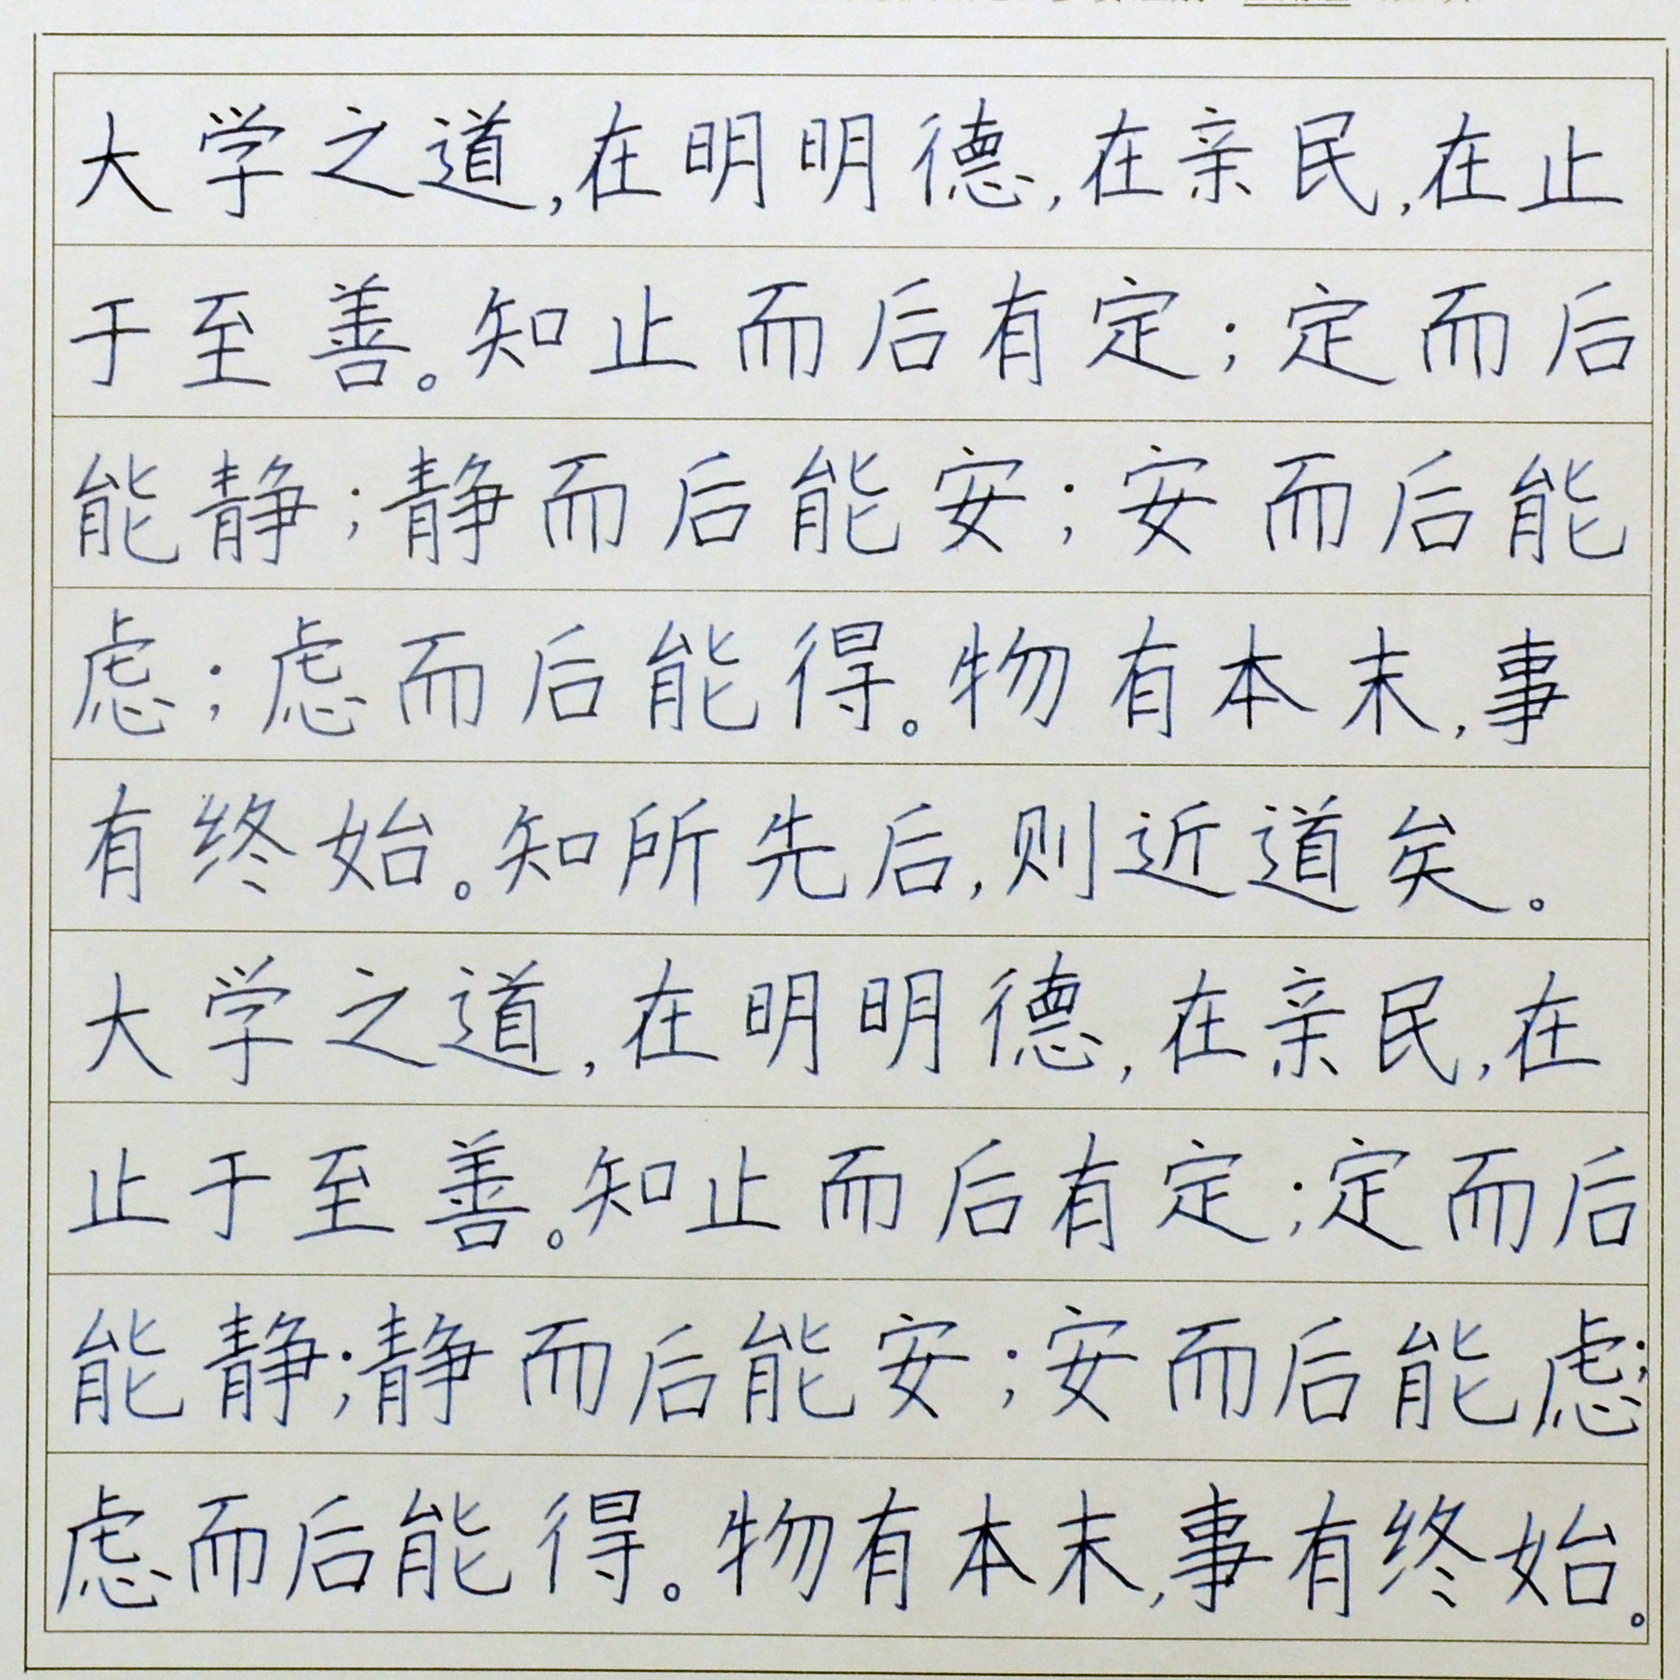 大学之道,在明明德,在亲民,在止
于至善。知止而后有定;定而后
能静;静而后能安;安而后能
虑;虑而后能得。物有本末,事
有终始。知所先后,则近道矣。
大学之道,在明明德,在亲民,在
止于至善。知止而后有定;定而后
能静;静而后能安;安而后能虑;
虑而后能得。物有本末,事有终始。